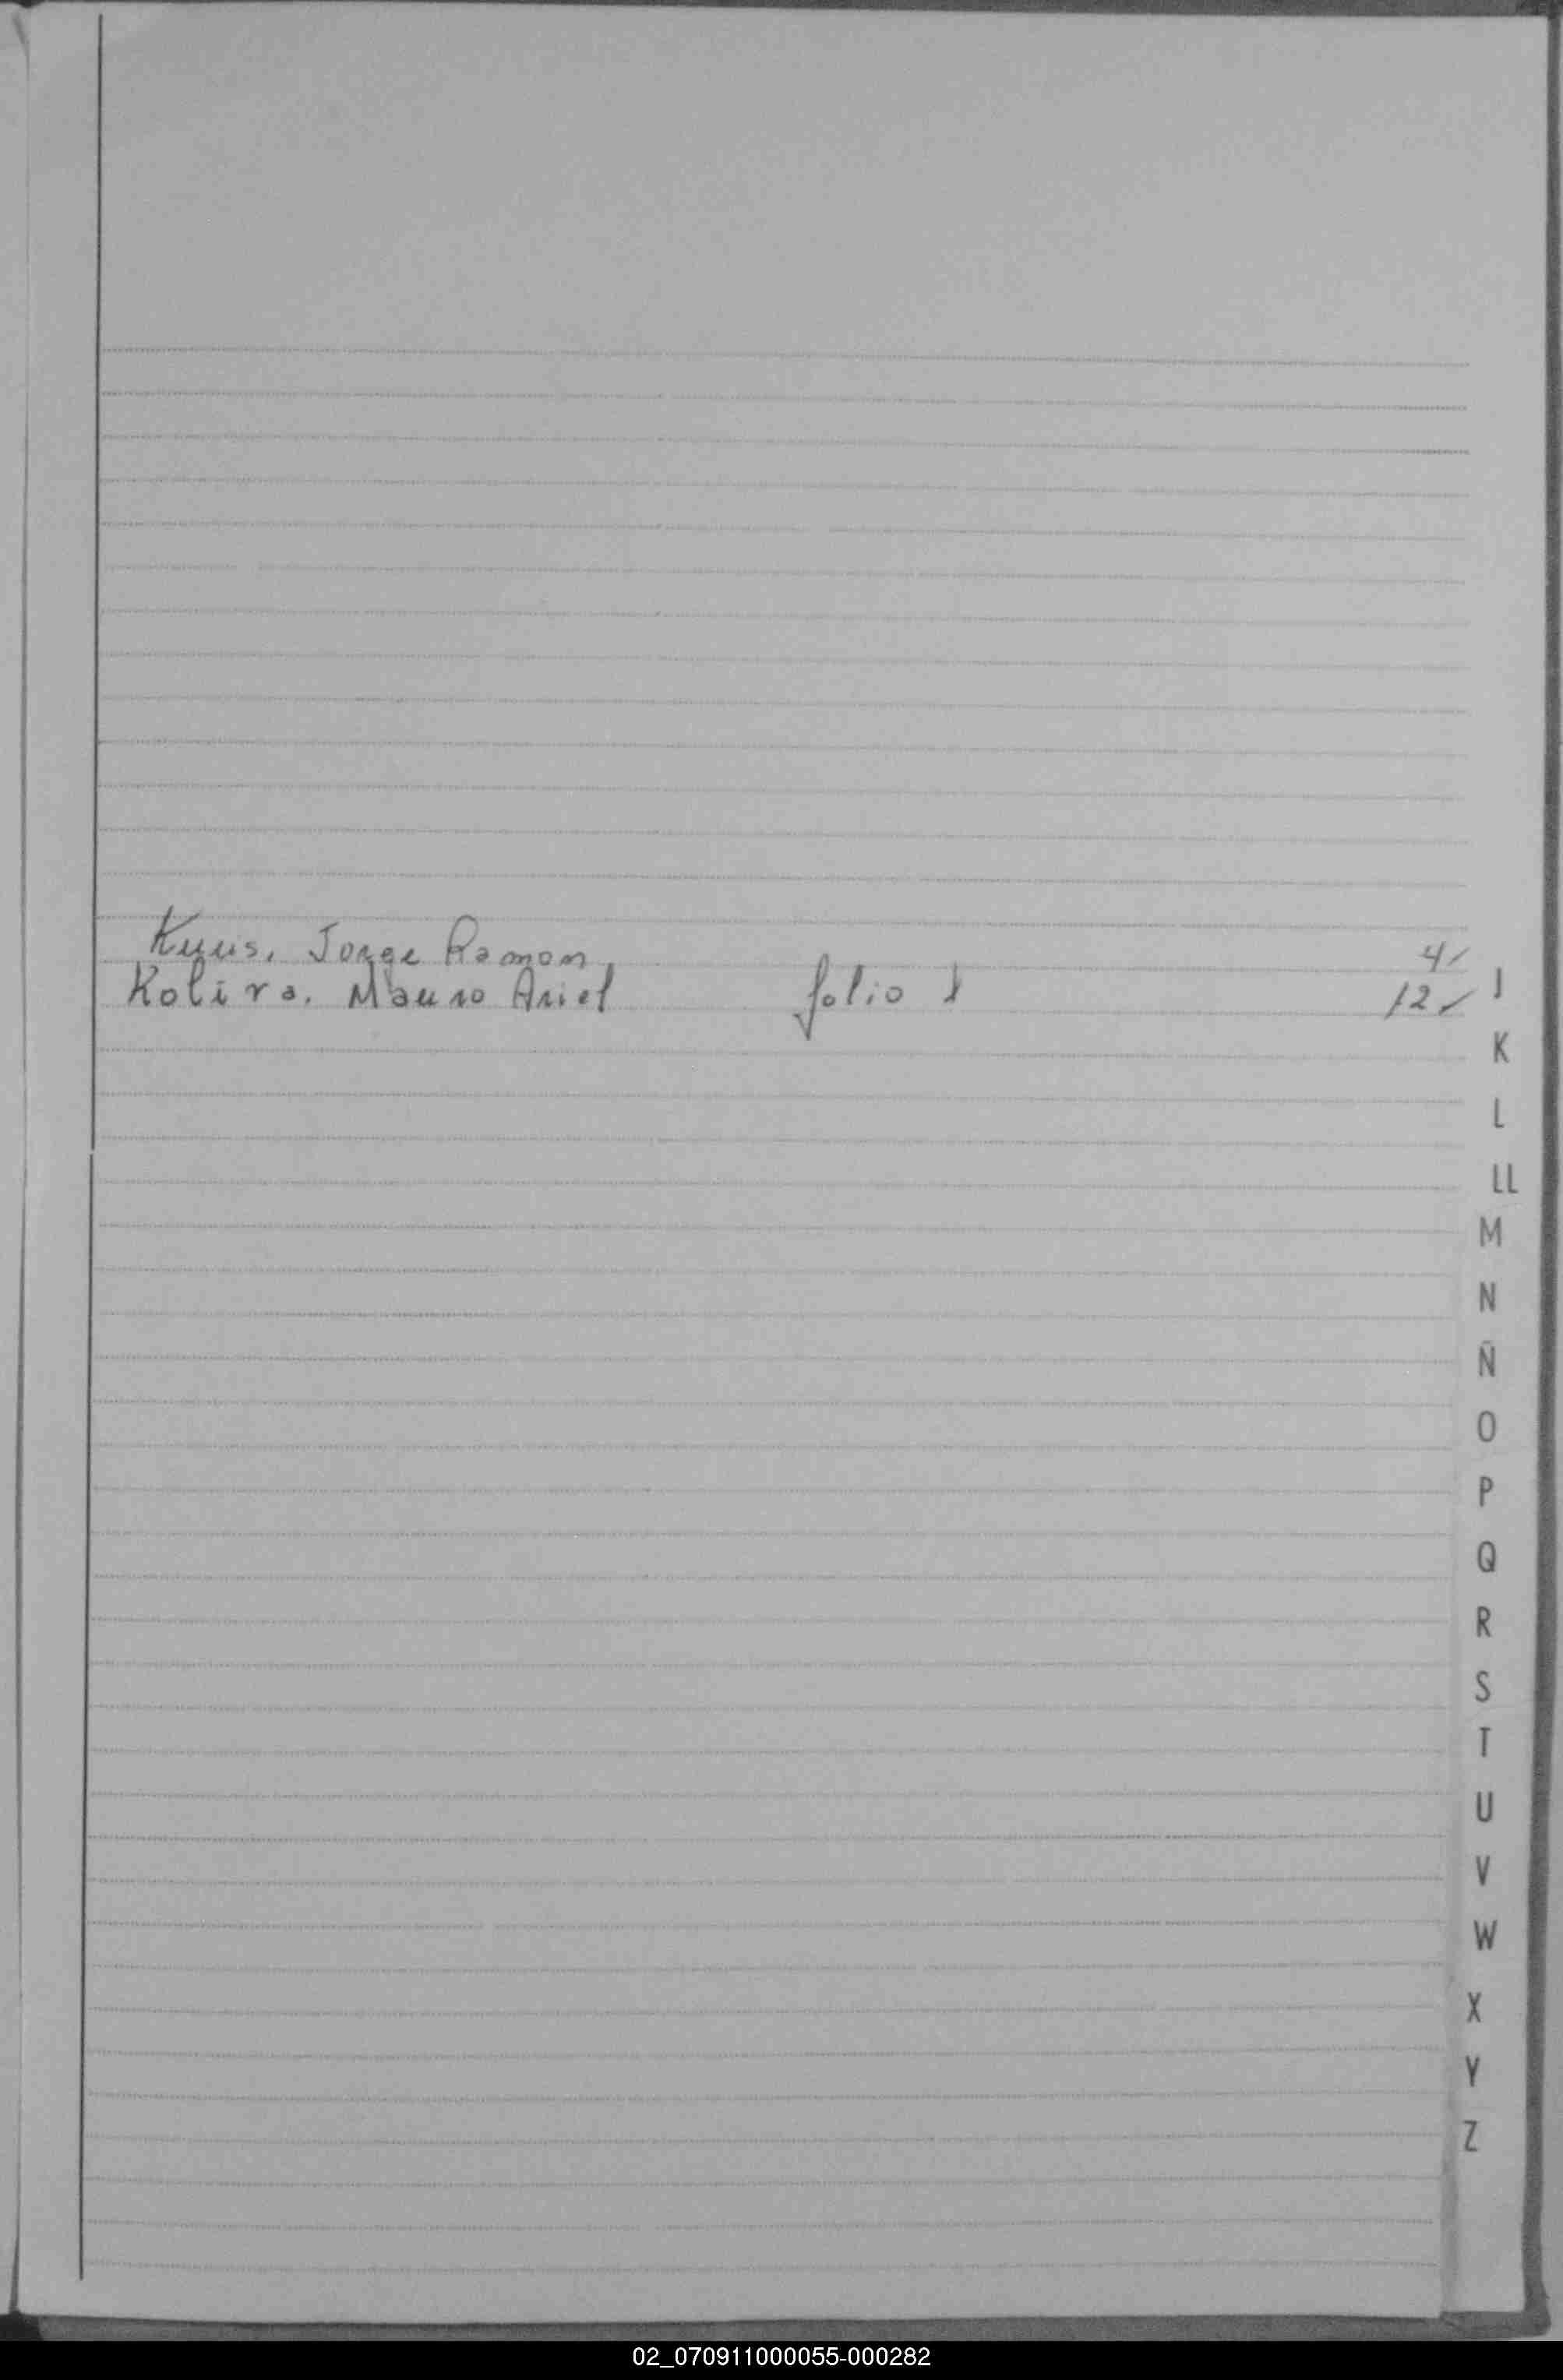 Kuus, Jorge Ramon 4
Kolira, Mauro Ariel folio 12
J
K
L
LL
M
N
Ñ
O
P
Q
R
S
T
U
V
W
X
Y
Z
02_070911000055-000282